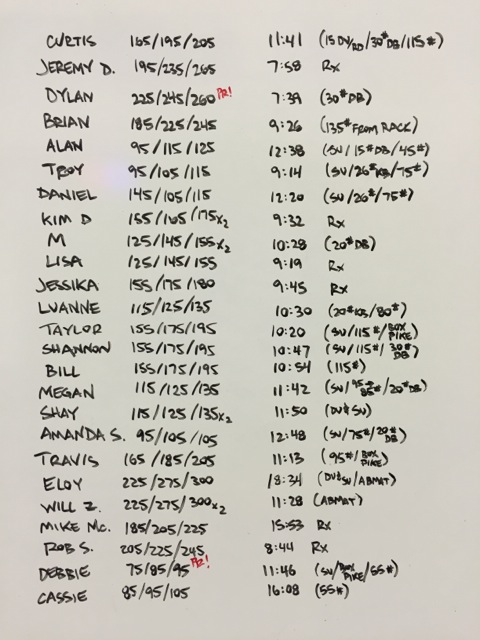 CURTIS 165/195/205 11:41 (15 DU/RD/30# DB/115#)
JEREMY D. 195/235/265 7:58 Rx
DYLAN 225/245/260 PR! 7:39 (30# DB)
BRIAN 185/225/245 9:26 (135# FROM RACK)
ALAN 95/115/125 12:38 (SU/15# DB/45#)
TROY 95/105/115 9:14 (SU/26# KB/75#)
DANIEL 145/105/115 12:20 (SU/26#/75#)
KIM D 155/165/175x2 9:32 Rx
M 125/145/155x2 10:28 (20# DB)
LISA 125/145/155 9:19 Rx
JESSIKA 155/175/180 9:45 Rx
LUANNE 115/125/135 10:30 (20# KB/80#)
TAYLOR 155/175/195 10:20 (SU/115#/BOX PIKE)
SHANNON 155/175/195 10:47 (SU/115#/30# DB)
BILL 155/175/195 10:54 (115#)
MEGAN 115/125/135 11:42 (SU/95# 85#/20# DB)
SHAY 115/125/135x2 11:50 (DU&SU)
AMANDA S. 95/105/105 12:48 (SU/75#/20# DB)
TRAVIS 165/185/205 11:13 (95#/BOX PIKE)
ELOY 225/275/300 18:34 (DU&SU/ABMAT)
WILL Z. 225/275/300x2 11:28 (ABMAT)
MIKE MC. 185/205/225 15:53 Rx
ROB S. 205/225/245 8:44 Rx
DEBBIE 75/85/95 PR! 11:46 (SU/BOX PIKE/55#)
CASSIE 85/95/105 16:08 (55#)